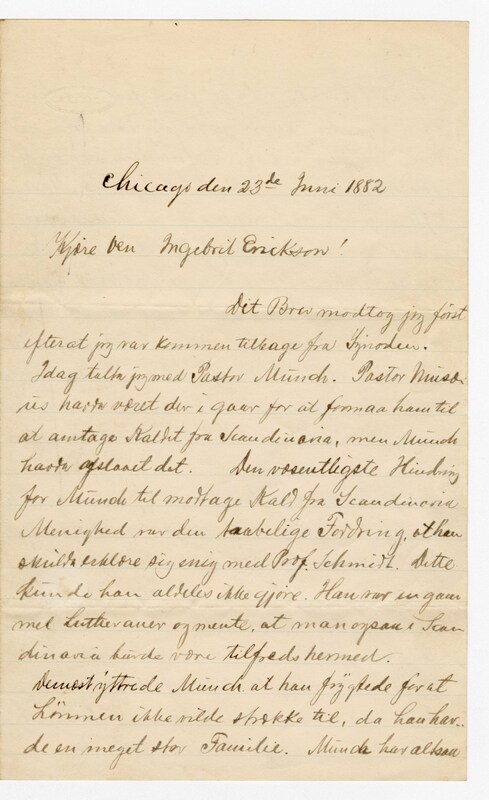 Chicago den 23de Juni 1882
Kjære Ven Ingebrit Erickson!
Dit Brev modtog jeg först
efter at jeg var kommen tilbage fra Synoden.
Idag talte jeg med Pastor Münch. Pastor Musæ-
us havde været der i gaar for at formaa ham til
at antage Kaldet fra Scandinavia, men Münch
havde afslaaet det. Den væsentligste Hindring
for Münch til modtage Kald fra Scandinavia
Menighed var den taabelige Fordring, at han
skulde erklære sig enig med Prof. Schmidt. Dette
kunde han aldeles ikke gjöre. Han var en gam-
mel Lutheraner og mente, at man ogsaa i Scan-
dinavia burde være tilfreds hermed.
Dernæst yttrede Münch at han frygtede for at
Lönnen ikke vilde strække til, da han hav-
de en meget stor Familie. Münch har altsaa